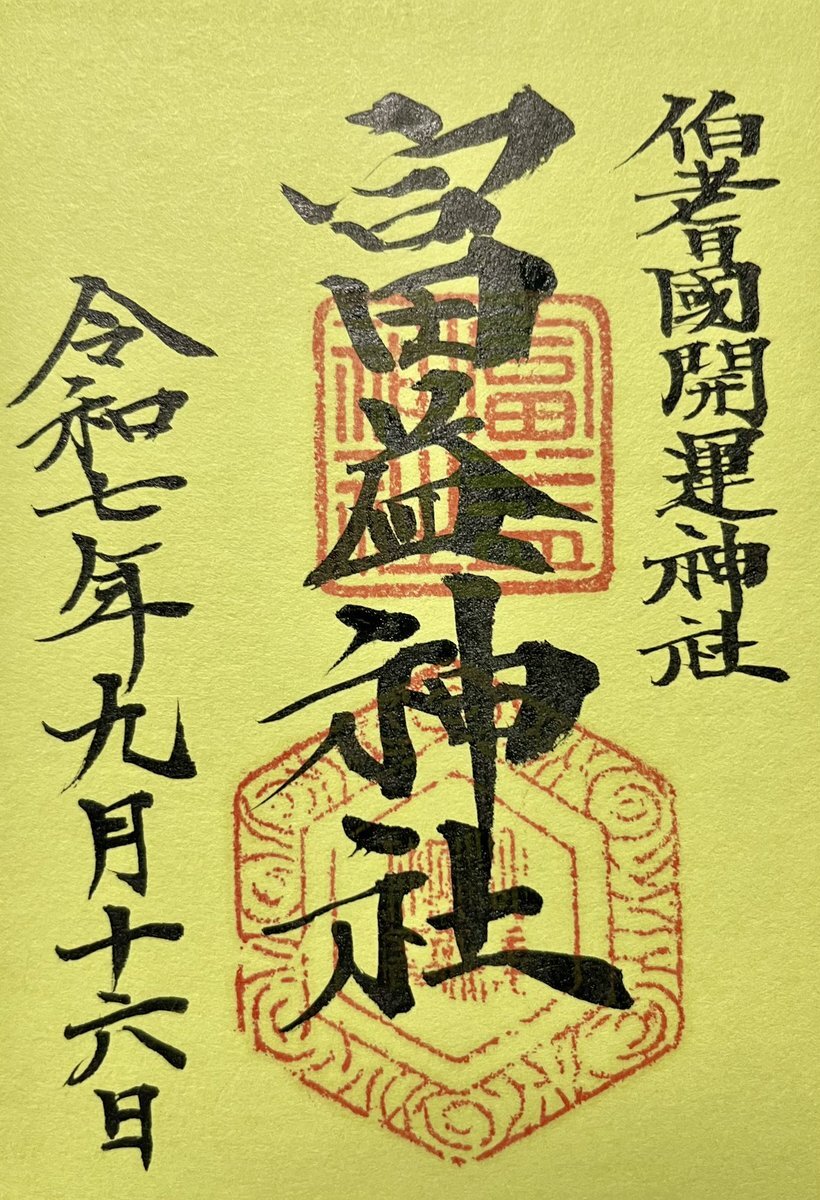 伯耆國開運神社
冨益神社
令和七年九月十六日
冨益
神社